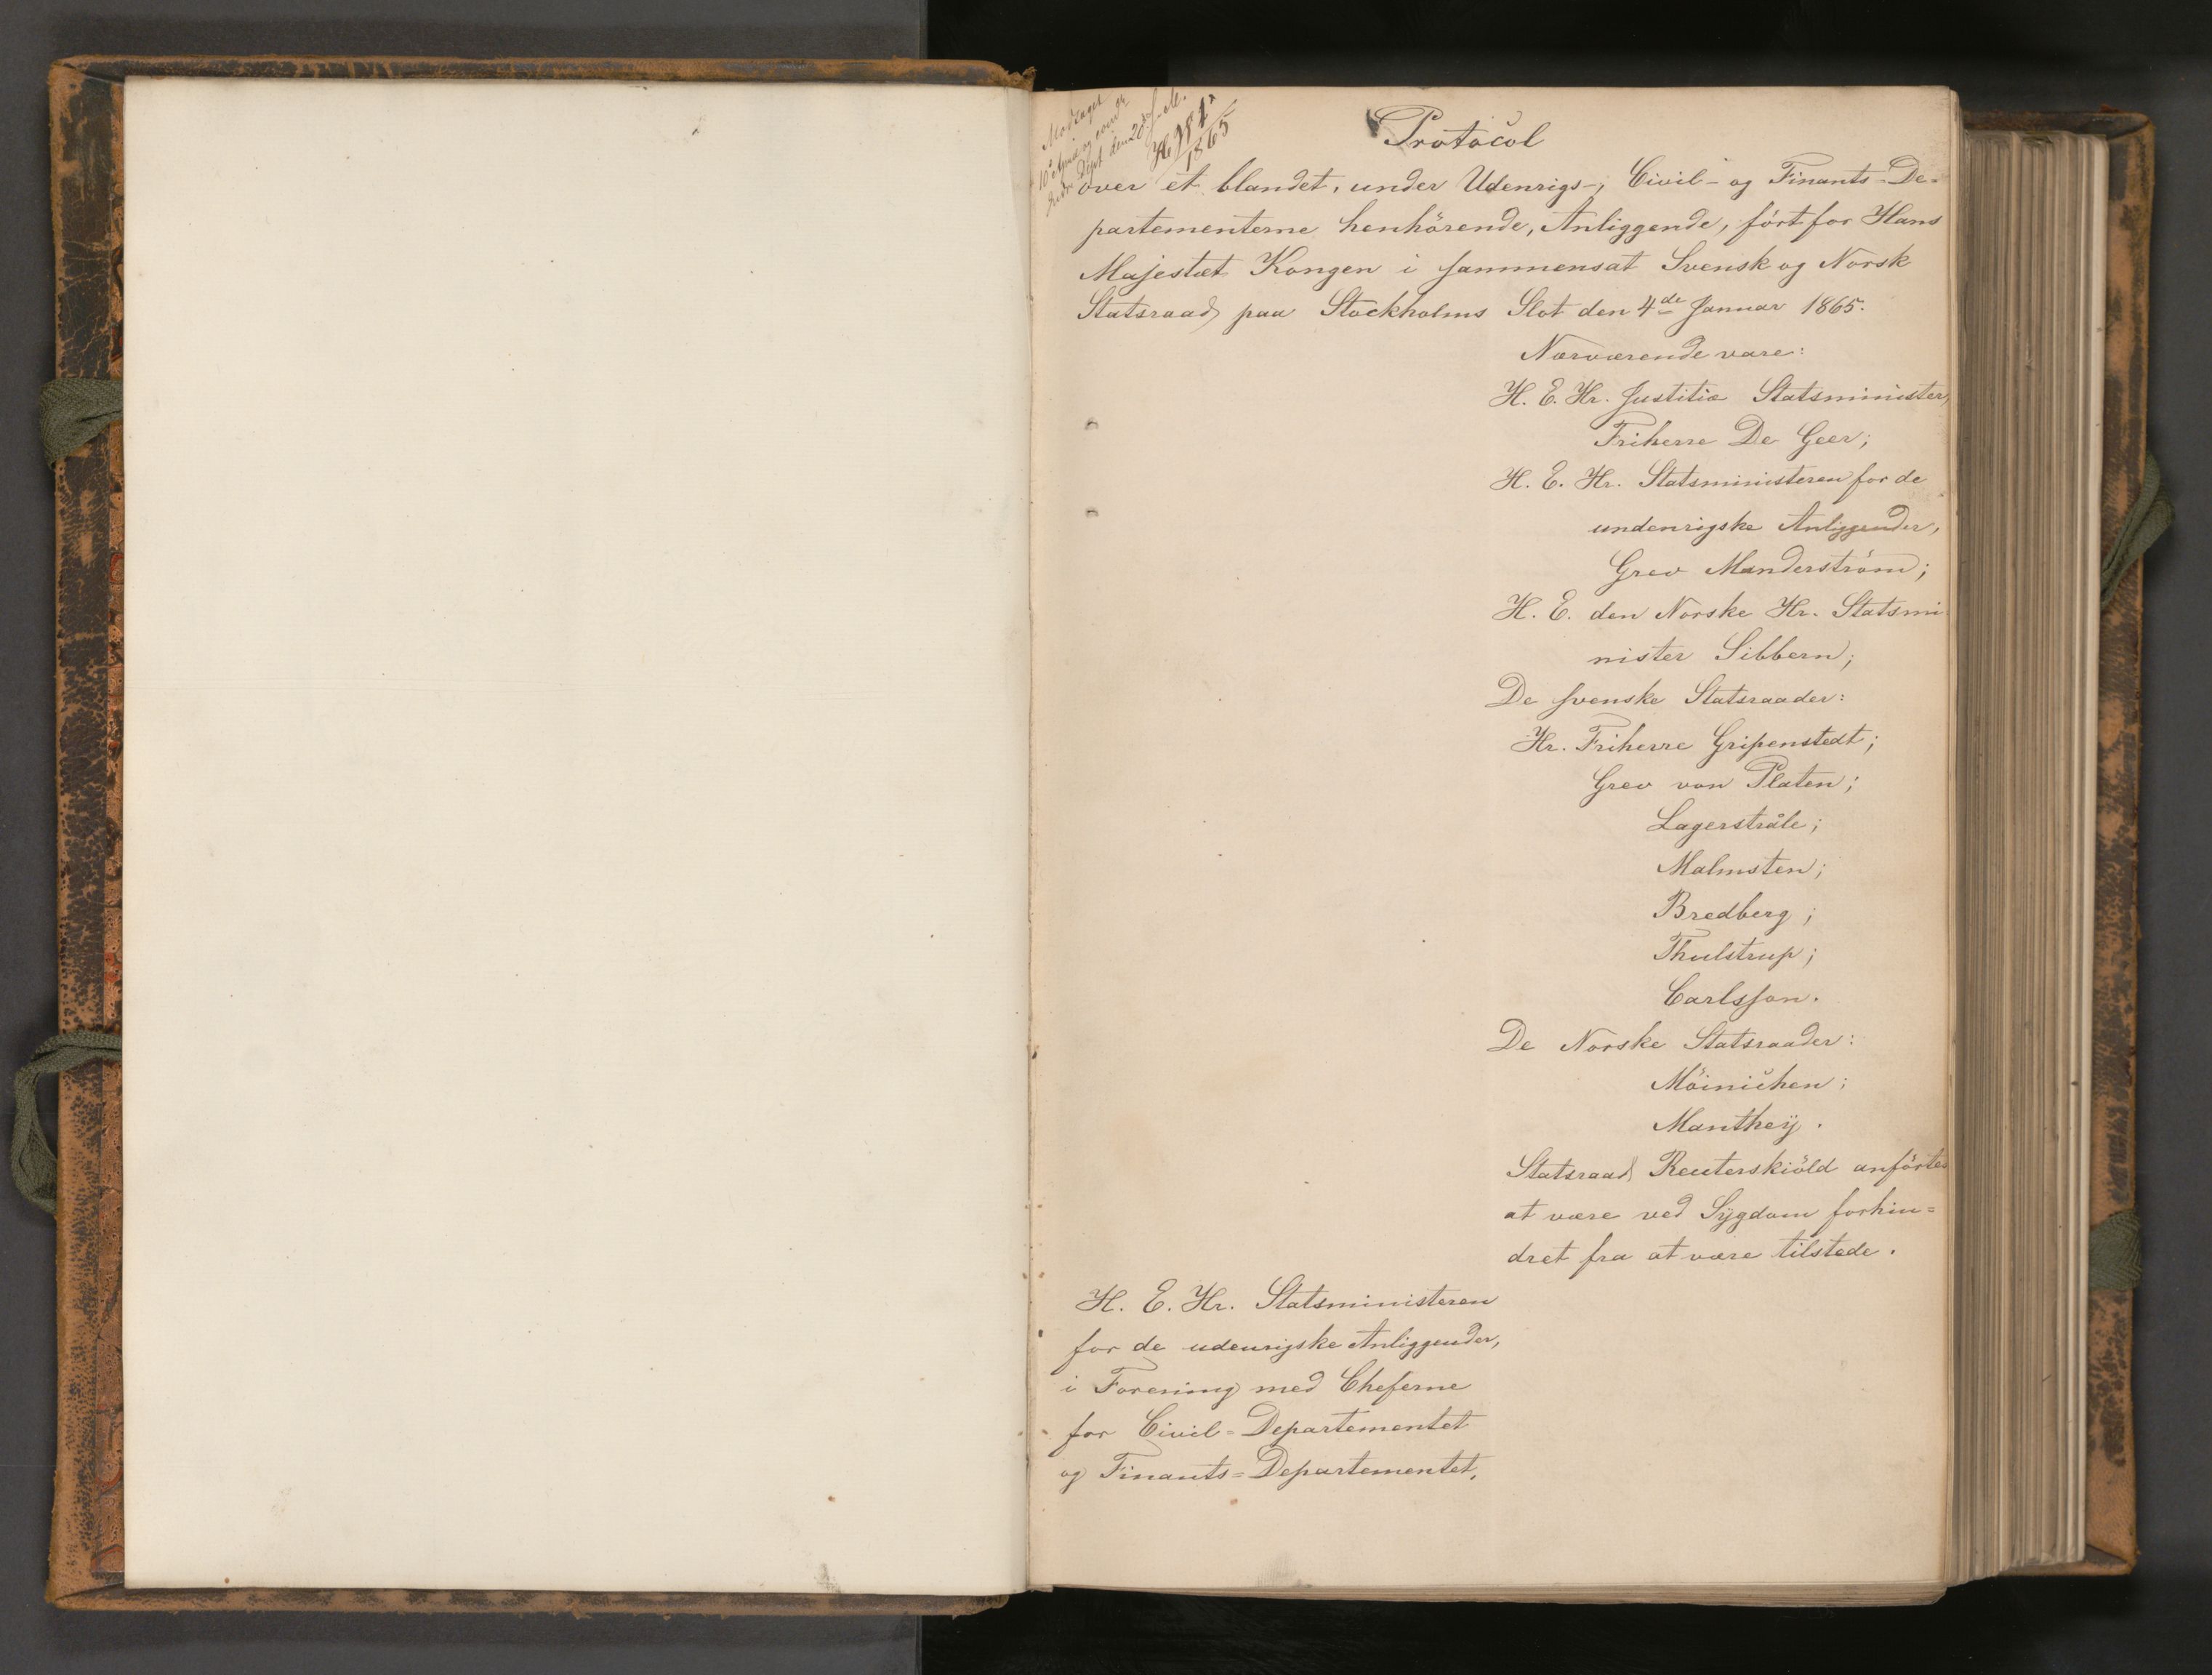 Modtaget
den 20de
1865
Protocol
over et blandet, under Udenrigs-, Civil- og Finants-De-
partementerne henhörende, Anliggende, fört for Hans
Majestæt Kongen i sammensat Svensk og Norsk
Statsraad paa Stockholms Slot den 4de Januar 1865.
Nærværende vare:
H. E. Hr. Justitiæ Statsminister,
Friherre De Geer;
H. E. Hr. Statsministeren for de
undenrigske Anliggender,
Grev Manderström;
H. E. den Norske Hr. Statsmi-
nister Sibbern;
De svenske Statsraader:
Hr. Friherre Gripenstedt;
Grev von Platen;
Lagerstråle;
Malmsten;
Bredberg;
Thulstrup;
Carlsson.
De Norske Statsraader:
Möinichen;
Manthey.
Statsraad Reuterskiöld anförtes
at være ved Sygdom forhin=
dret fra at være tilstede.
H. E. Hr. Statsministeren
for de udenrigske Anliggender,
i Forening med Cheferne
for Civil=Departementet
og Finants=Departementet,